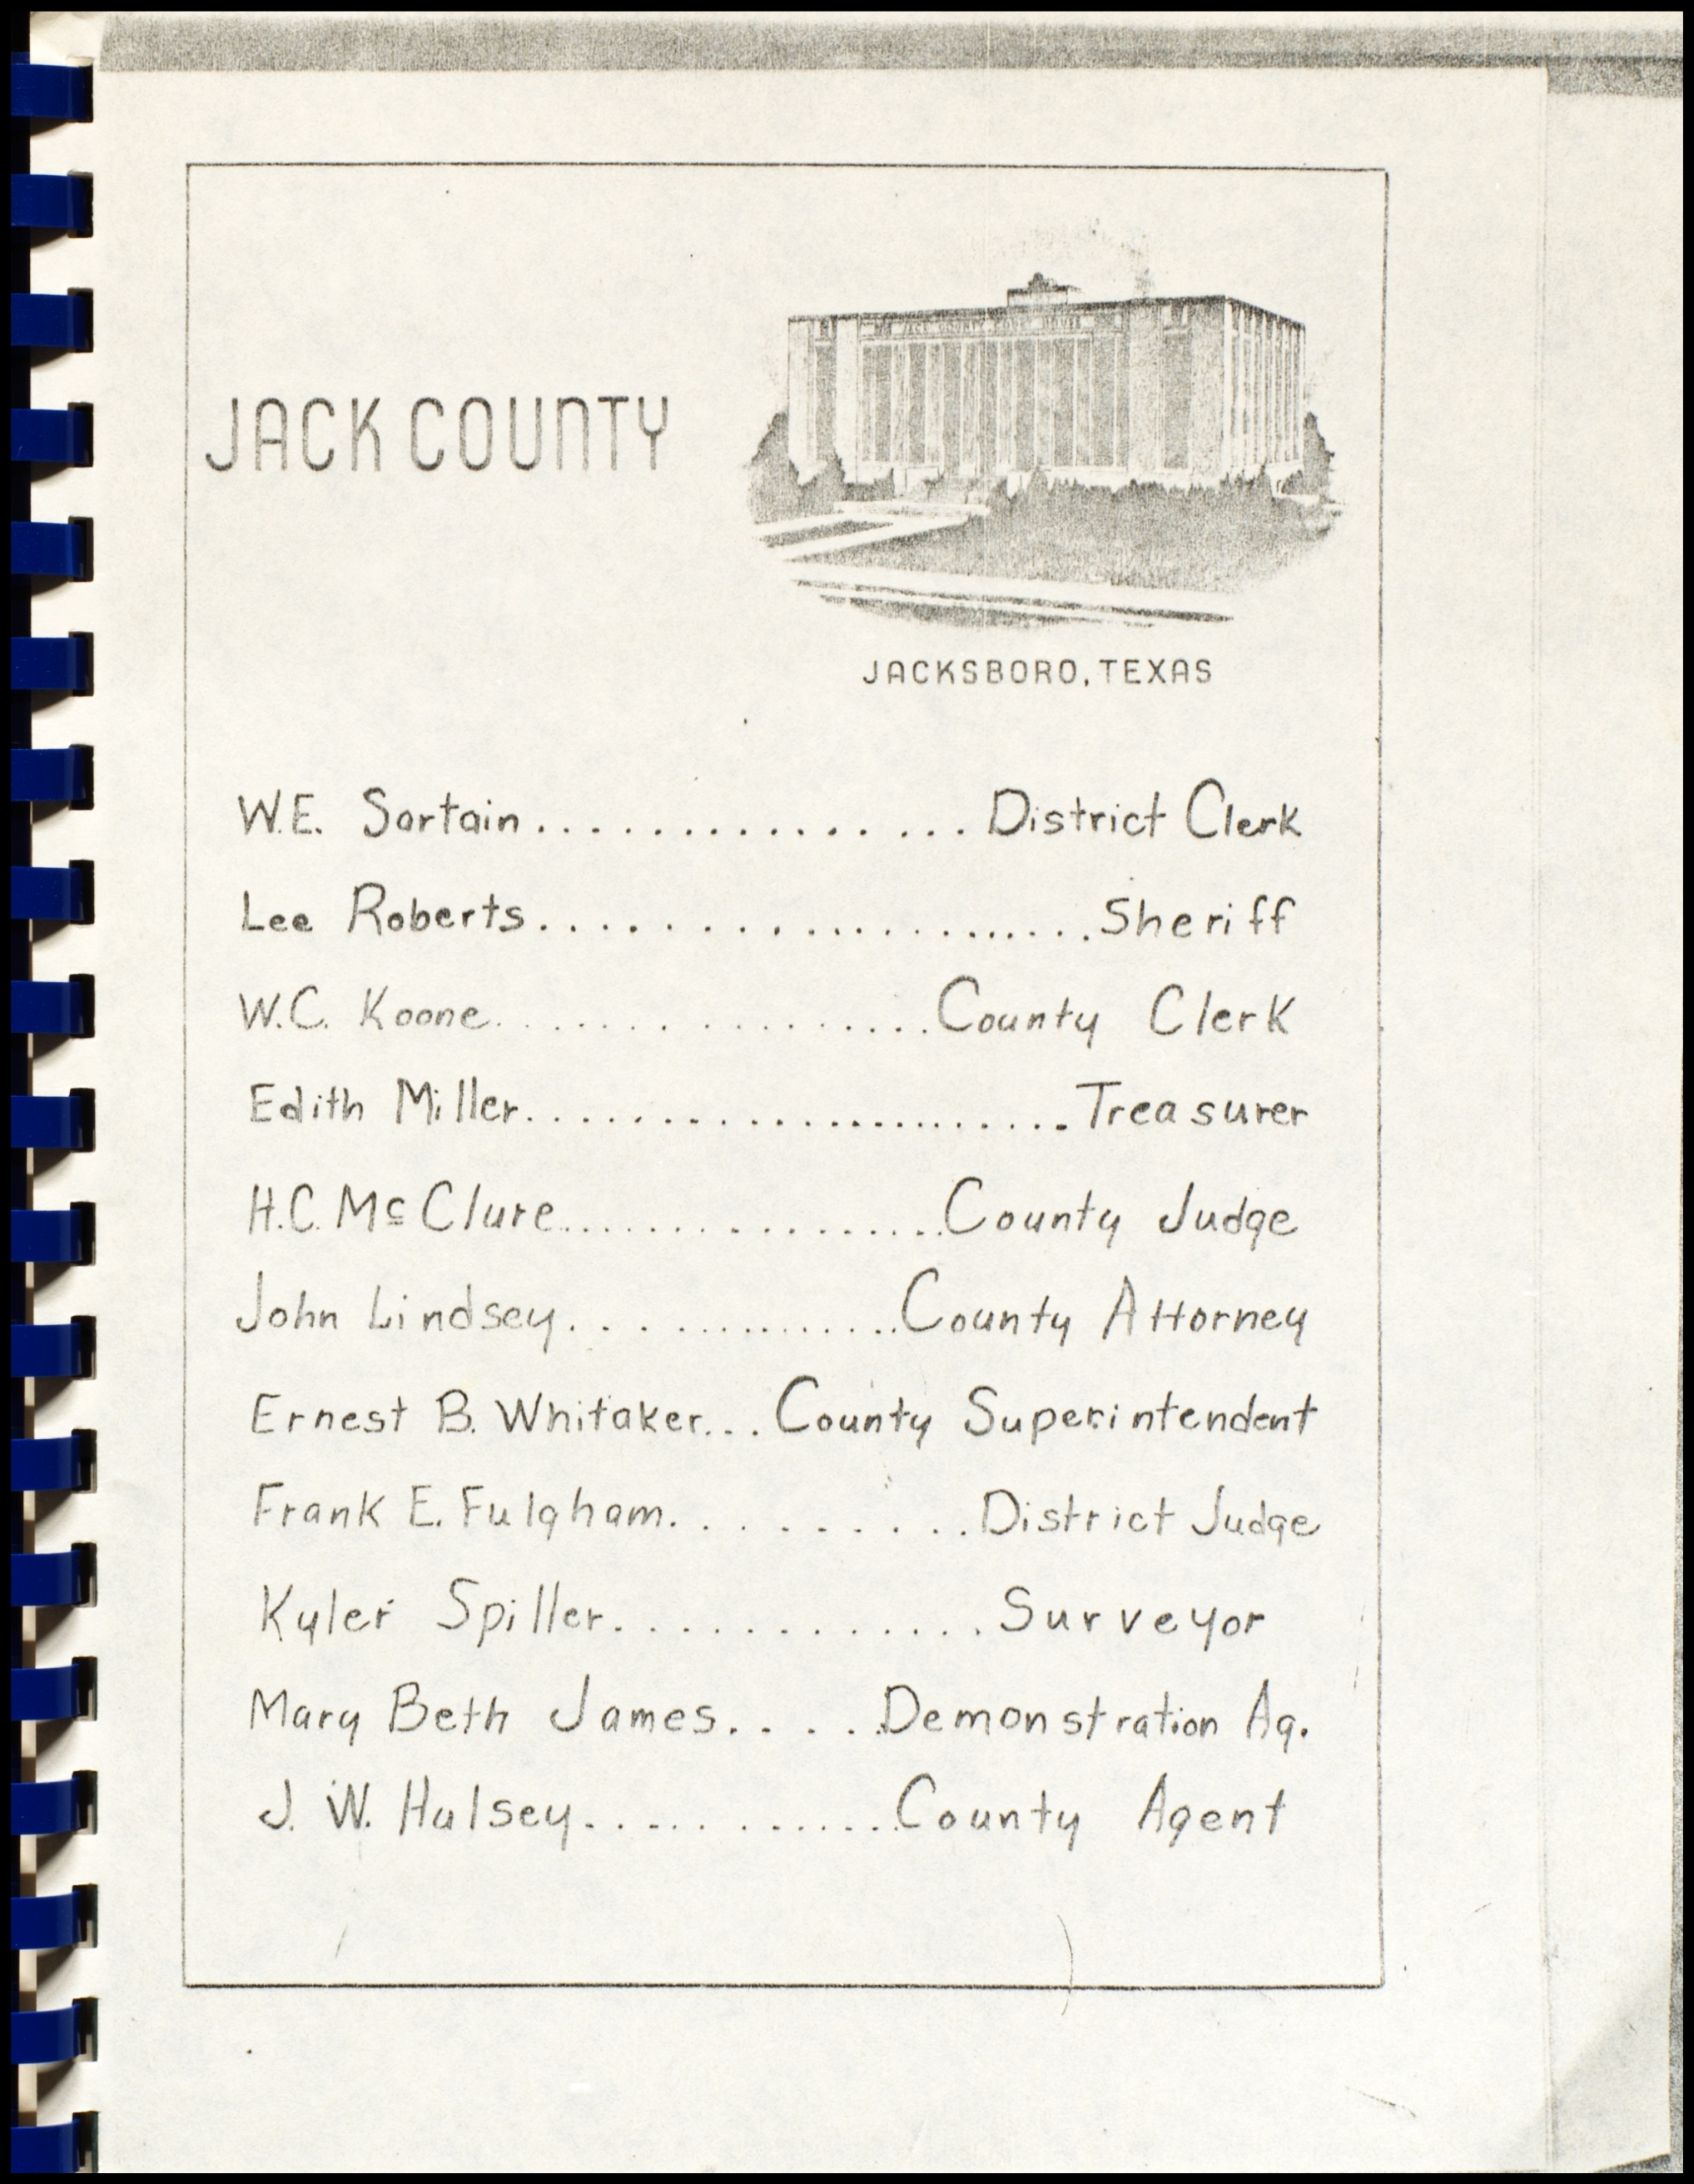 JACK COUNTY COURT HOUSE
JACK COUNTY
JACKSBORO, TEXAS
W.E. Sartain................District Clerk
Lee Roberts.....................Sheriff
W.C. Koone.................County Clerk
Edith Miller......................Treasurer
H.C. McClure.................County Judge
John Lindsey..............County Attorney
Ernest B. Whitaker...County Superintendent
Frank E. Fulgham..........District Judge
Kyler Spiller..............Surveyor
Mary Beth James.....Demonstration Ag.
J. W. Hulsey............County Agent